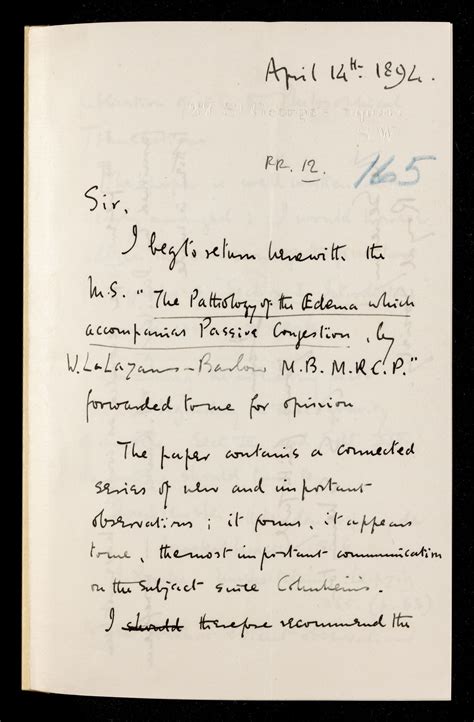 April 14th. 1894.
RR. 12.
165
Sir,
I beg to return herewith the
M.S. "The Pathology of the Œdema which
accompanies Passive Congestion, by
W. Lazarus-Barlow M.B. M.R.C.P."
forwarded to me for opinion
The paper contains a connected
series of new and important
observations; it forms, it appears
to me, the most important communication
on the subject since Cohnheim's.
I should therefore recommend the